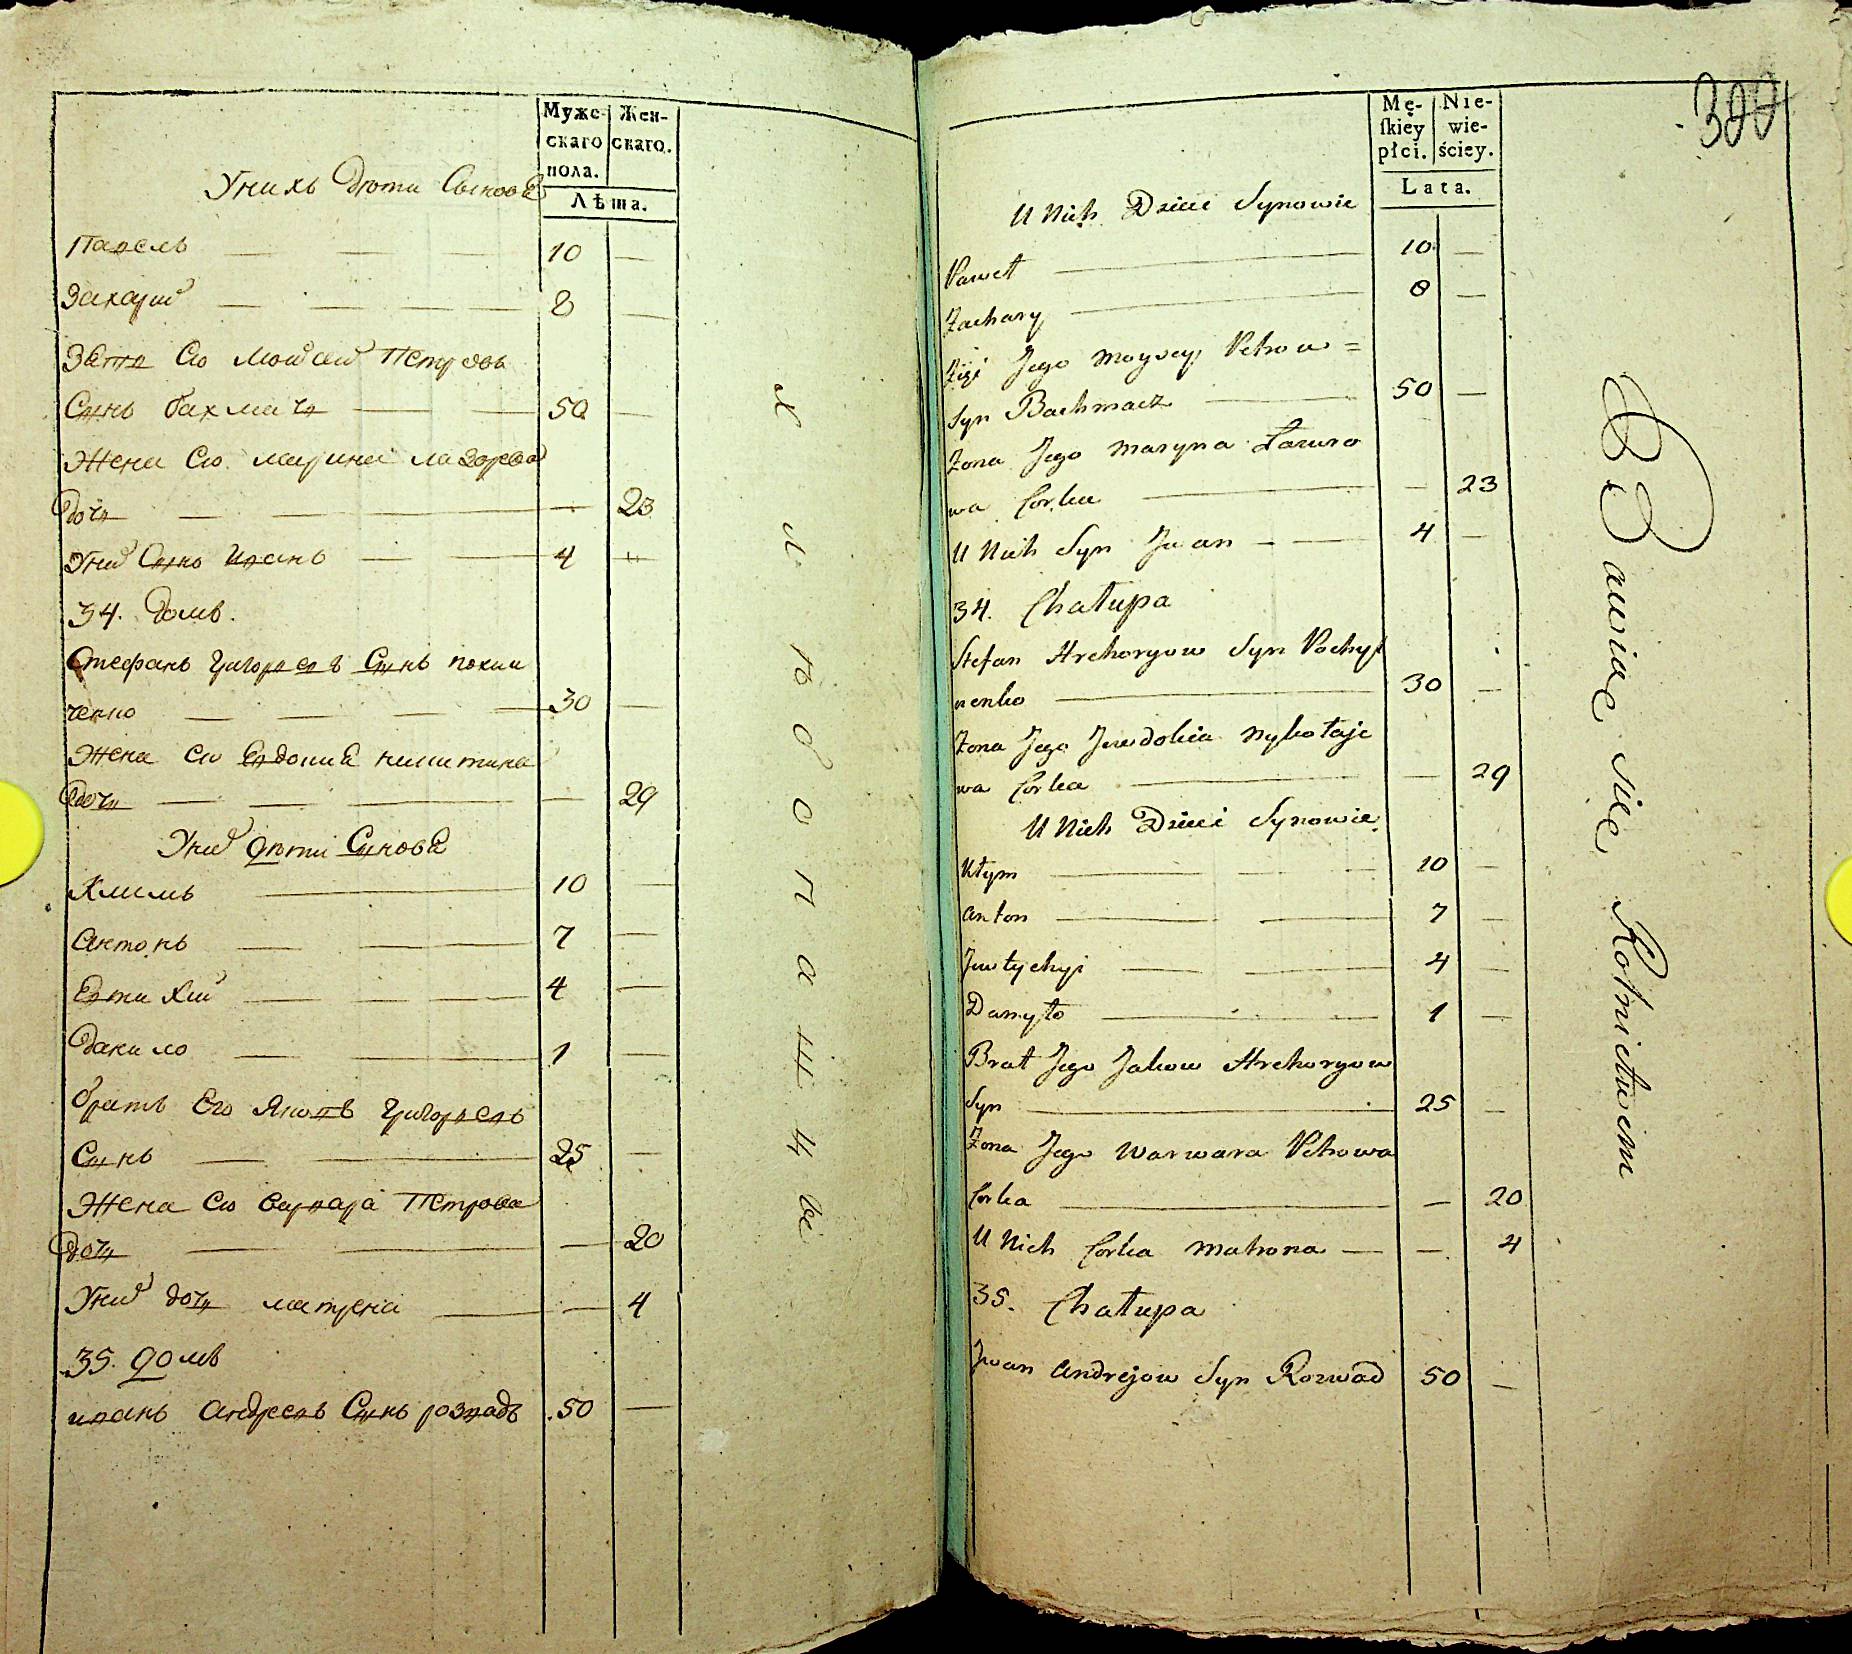 Муже-
скаго
пола.
Жен-
скаго.
Лѣта.
Унихъ дѣти Сынове
Павелъ — — — 10 —
Захарій — — — 8 —
Зять Єго Мойсей Петровъ
Сынъ бахмачъ — — 50 —
Жена Єго марина лазорова
дочъ — — — — 23
Унихъ Сынъ иванъ — — 4 —
34. домъ.
Стефанъ григориевъ Сынъ похил
ченко — — — — 30 —
Жена Єго Євдокия никитина
дочъ — — — — 29
Унихъ дѣти Синовѣ
Климъ — 10 —
Антонъ — — 7 —
Євтихій — — — 4 —
данило — — 1 —
братъ Єго Яковъ григориевъ
Сынъ — — 25 —
Жена Єго варвара Петрова
дочъ — — — 20
Унихъ дочъ матрена — — 4
35. домъ
иванъ Андреевъ Сынъ розвадъ 50 —
хлѣбопашцы
Mę-
skiey
płci.
Nie-
wie-
ściey.
Lata.
399
U Nich Dzieci Synowie
Paweł — 10 —
Zachary — 8 —
Zięć Jego Moysey Petrow =
Syn Bachmacz — 50 —
Żona Jego Maryna Łazuro
wa Corka — — 23
U Nich Syn Jwan — — 4 —
34. Chałupa
Stefan Hrehoryow Syn Pochył
nenko — 30 —
Żona Jego Jewdokia Nykołaje
wa Corka — — 29
U Nich Dzieci Synowie
Kłym — — — 10 —
Anton — — 7 —
Jewtychyi — — 4 —
Danyło — — 1 —
Brat Jego Jakow Hrehoryow
Syn — 25 —
Żona Jego Warwara Petrowa
Corka — — 20
U Nich Corka Matrona — — 4
35. Chałupa
Jwan Andrejow Syn Rozwad 50 —
Bawiąc się Rolnictwem